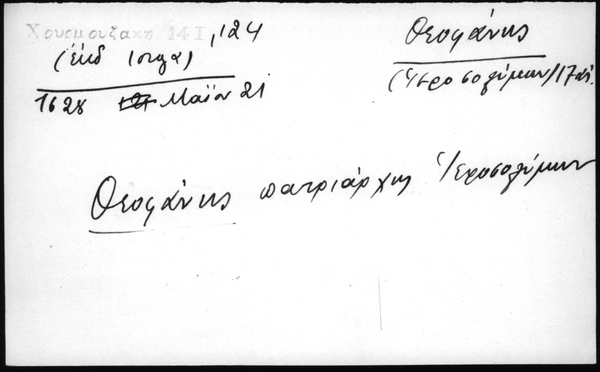 Χουρμουζάκη 14 Ι, 124
(ἐκδ
1628 Μαΐου 21
Θεοφάνης
(Ἱεροσολύμων/17 αἰ.
Θεοφάνης πατριάρχης Ἱεροσολύμων